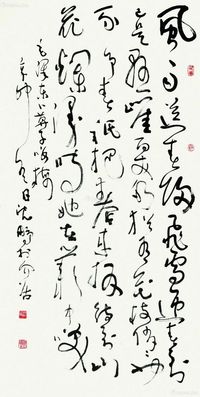 風雨送春歸飛雪迎春到
已是懸崖百丈冰猶有花枝俏俏也
不争春只把春来報待到山
花爛漫時她在叢中笑
毛澤東卜算子咏梅
辛卯 月沈鵬於介居